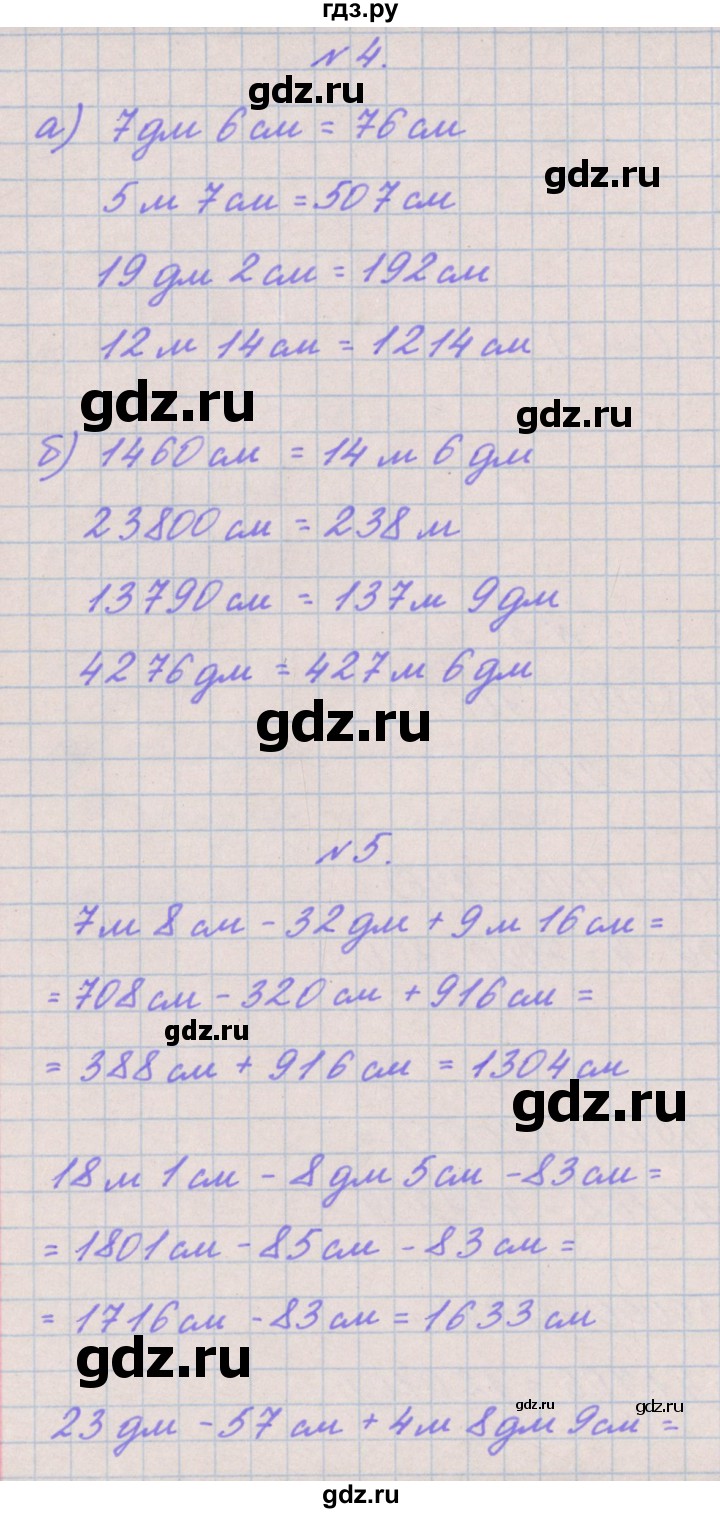 гдз.ру
№ 4.
gdz.ru
а) 7 дм 6 см = 76 см
gdz.ru
5 м 7 см = 507 см
19 дм 2 см = 192 см
12 м 14 см = 1214 см
gdz.ru
gdz.ru
б) 1460 см = 14 м 6 дм
23800 см = 238 м
13790 см = 137 м 9 дм
4276 дм = 427 м 6 дм
gdz.ru
№ 5.
7 м 8 см - 32 дм + 9 м 16 см =
= 708 см - 320 см + 916 см =
gdz.ru
= 388 см + 916 см = 1304 см
gdz.ru
18 м 1 см - 8 дм 5 см - 83 см =
= 1801 см - 85 см - 83 см =
= 1716 см - 83 см = 1633 см
gdz.ru
gdz.ru
gdz.ru
23 дм - 57 см + 4 м 8 дм 9 см =
gdz.ru